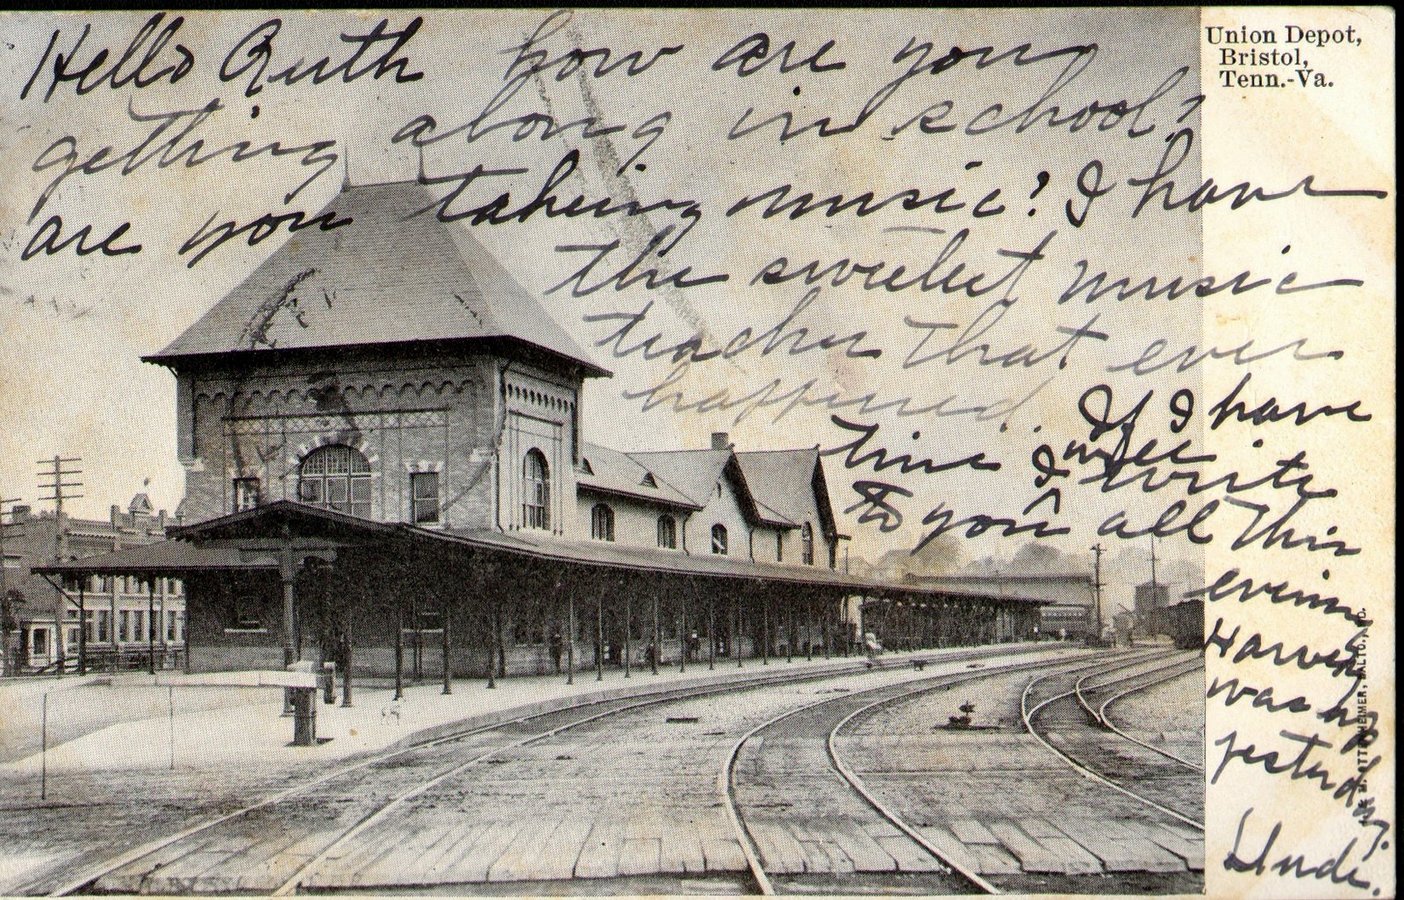 Union Depot,
Bristol,
Tenn.-Va.
Hello Ruth how are you
getting along in school?
are you taking music? I have
the sweetest music
teacher that ever
happened. If I have
time I will write
to you all this
evening
Harvey
was up
yesterday.